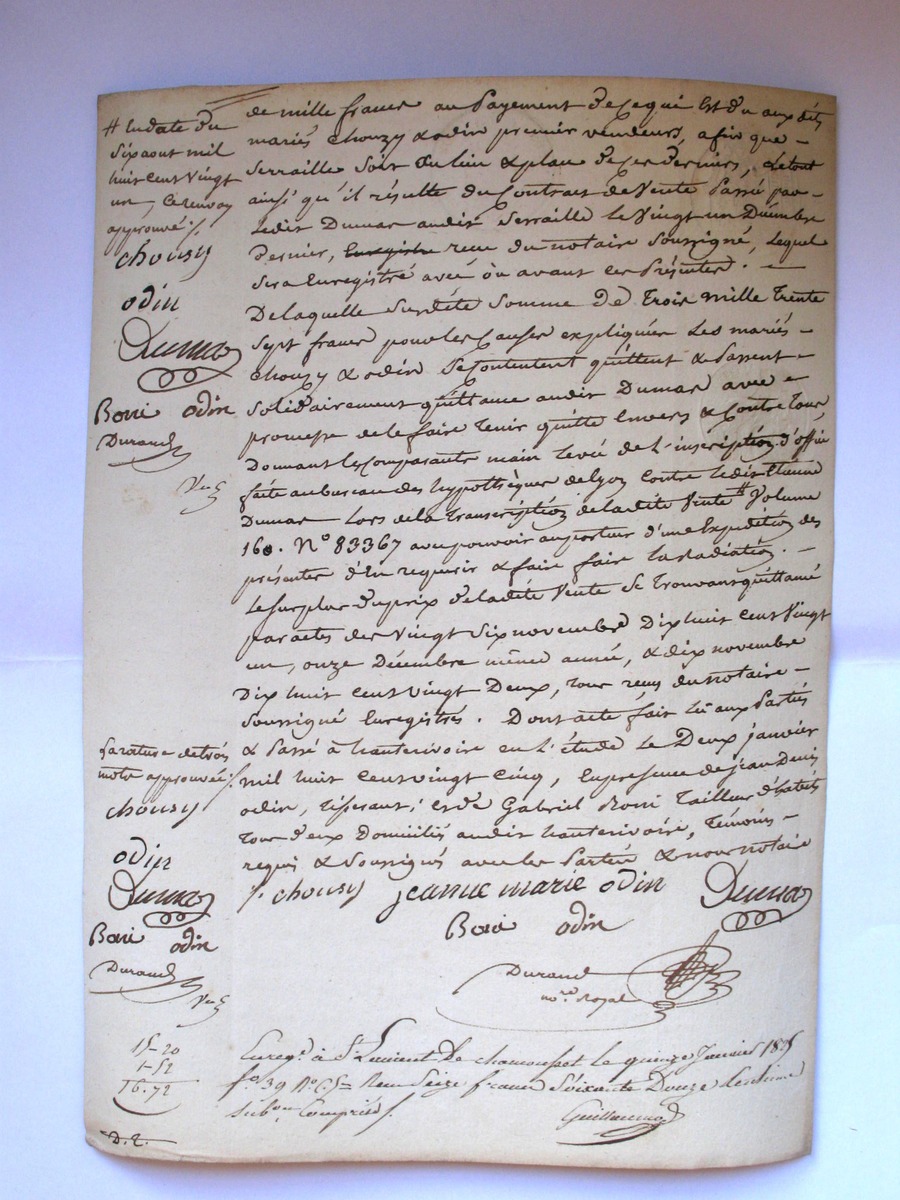 # En date du
Six aout mil
huit cent vingt
un, Ce renvoy
approuvé ./.
chousy
odin
Dumas
Boni odin
Durand
de mille francs au Payement de ce qui Est du aux dts
mariés Chouzy & odin premier vendeurs, afin que -
Serraille Soit au lieu & place de Ces derniers, Le tout
ainsi qu'il résulte du Contrat de Vente Passé par -
Ledit Dumas audit Serraille Le Vingt un Décembre
dernier, Enregistré recu du notaire Soussigné, Lequel
Sera Enregistré avec où avant ces Présentes. -
De laquelle Susdite Somme de Trois mille Trente
Sept francs pour les Causes expliquées Les mariés -
Chouzy & odin Se Contentent quittent & Passent -
Solidairement quittance audit Dumas avec -
promesse de le faire Tenir quitte Envers & Contre Tous,
Donnant les Comparants main levée de L'inscription d'office
faite au bureau des hypothèques de Lyon Contre Ledit
Dumas Lors de la Transcription de ladite Vente # Volume
160. N° 83367 avec pouvoir au porteur d'une Expédition des
présentes d'En requerir & faire faire La radiation. -
Le Surplus du prix de ladite Vente Se Trouvant quittancé
par actes des Vingt Six novembre Dix huit Cent Vingt
un, onze Décembre même année, & dix novembre
Dix huit Cent Vingt Deux, Tous recus du notaire -
Soussigné Enregistrés. Dont acte fait Lu aux Parties
& Passé à hauterivoire en L'étude Le Deux janvier
mil huit Cent vingt Cinq, En présence de jean Denis
odin, , & de Gabriel Boni Tailleur d'habits
Tous deux Domiciliés audit hauterivoire, Témoins -
requis & Soussignés avec les Parties & nous notaire
La rature de trois
mots approuvée ./.
chousy
odin
Dumas
Boni odin
Durand
./. chousy jeanne marie odin Dumas
Boni odin
Durand
nore Royal
15-20
1-52
16.72
D. 2.
Enregé à St Laurent De chamousset le quinze Janvier 1825
fo 39 No C5 Recu Seize francs Soixante Douze Centimes
Subon Comprise ./.
Guillermod